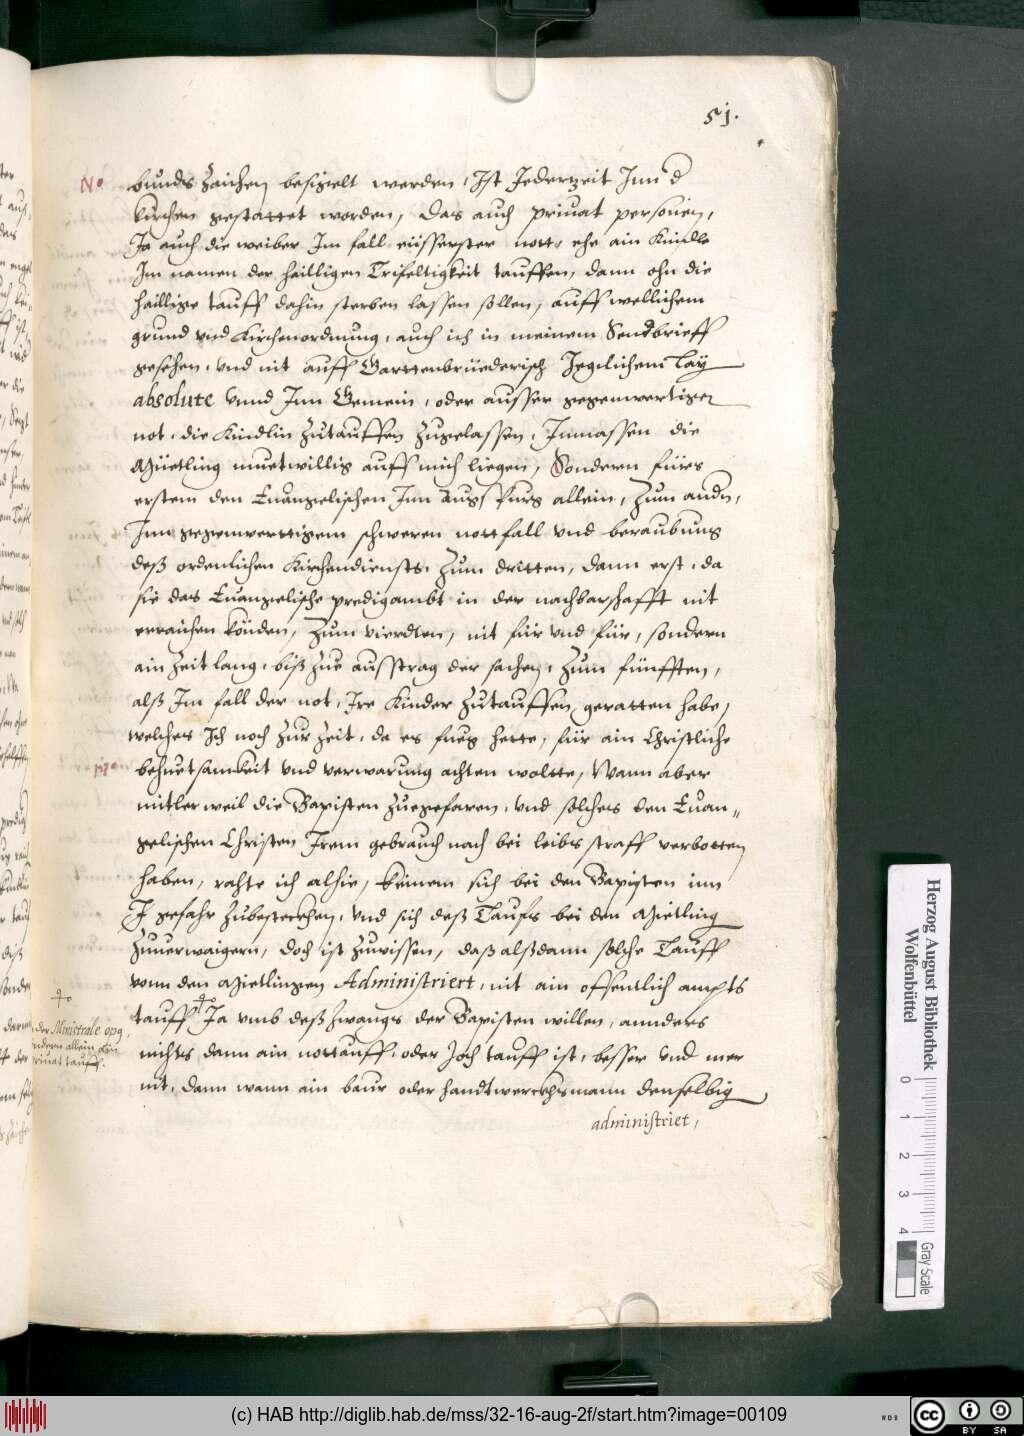 51.
N°
bunds zaichen besigelt werden, Ist Jederzeit Inn d
kirchen gestattet worden, Das auch priuat personen,
Ja auch die weiber Im fall eüsserster nott, ehe ain Kindle
Im namen der hailligen Trifaltigkeit tauffen, dann ohn die
haillige tauff dahin sterben lassen sollen, auff wellichem
grund vnd Kirchenordnung, auch ich in meinem Sendbrieff
gesehen, vnd nit auff Garttenbrüederisch Jegclichem Lay
absolute vnnd Inn Gemein, oder ausser gegenwertiger
not, die Kindlin zutauffen zugelassen, Inmassen die
Müetling muetwillig auff mich liegen, Sondern fürs
erstem den Euangelischen Inn Augspurg allein, Zum andn,
Inn gegenwerttigem schweren nottfall vnd beraubung
deß ordenlichen Kirchendiensts, Zum dritten, dann erst, da
sie das Euangelische predigambt in der nachbarschafft nit
erraichen könden, Zum vierdten, nit für vnd für, sondern
ain zeit lang, biß zue ausstrag der sachen, Zum fünfften,
alß Im fall der not, Ire Kinder zutauffen geratten habe,
welches Ich noch zur zeit, da es fueg hette, für ain Christliche
N°
behuetsamkeit vnd verwarung achten woltte, Wann aber
mitler weil die Bapisten zuegefaren, vnd solches den Euan=
gelischen Christen Irem gebrauch nach bei leibs straff verbotten
haben, rahte ich alhie, keinem sich bei den Bapisten inn
gefahr zubesteckhen, vnd sich deß Taufs bei den Mietling
zuuerwaigern, doch ist zuwissen, daß alßdann solche Tauff
vonn den Mietlingen Administriert, nit ain offentlich ampts
tauff ‡ Ja vmb deß zwangs der Bapisten willen, annders
nichts dann ain nottauff, oder Jach tauff ist, besser vnd mer
nit, dann wann ain baur oder handtwerckhsmann denselbig
administriet,
‡
der Ministrale
ndern allein ain
riuat tauff.
Herzog August Bibliothek
Wolfenbüttel
0 1 2 3 4
Gray Scale
(c) HAB http://diglib.hab.de/mss/32-16-aug-2f/start.htm?image=00109
WDB
cc BY SA